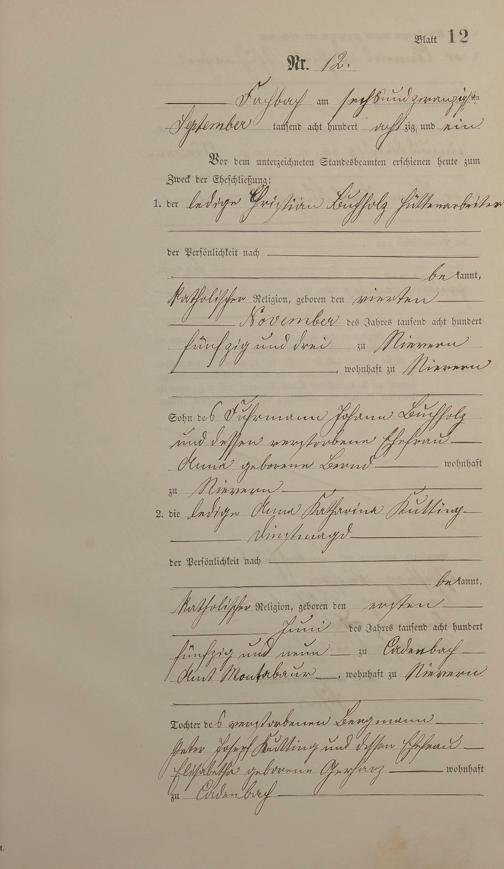 Blatt 12
Nr. 12.
Fachbach am sechsundzwanzigsten
September tausend acht hundert achtzig und ein
Vor dem unterzeichneten Standesbeamten erschienen heute zum
Zweck der Eheschließung:
1. der ledige Christian Buchholz Hüttenarbeiter
der Persönlichkeit nach
bekannt,
katholischer Religion, geboren den vierten
November des Jahres tausend acht hundert
fünfzig und drei zu Nievern
, wohnhaft zu Nievern
Sohn des Fuhrmann Johann Buchholz
und dessen verstorbene Ehefrau
Anna geborene Bernd wohnhaft
zu Nievern
2. die ledige Anna Katharina Kutting
Dienstmagd
der Persönlichkeit nach
bekannt,
katholischer Religion, geboren den ersten
Juni des Jahres tausend acht hundert
fünfzig und neun zu Cadenbach
Amt Montabaur, wohnhaft zu Nievern
Tochter des verstorbenen Bergmann
Peter Joseph Kutting und dessen Ehefrau
Elisabetha geborene Gerharz wohnhaft
zu Cadenbach